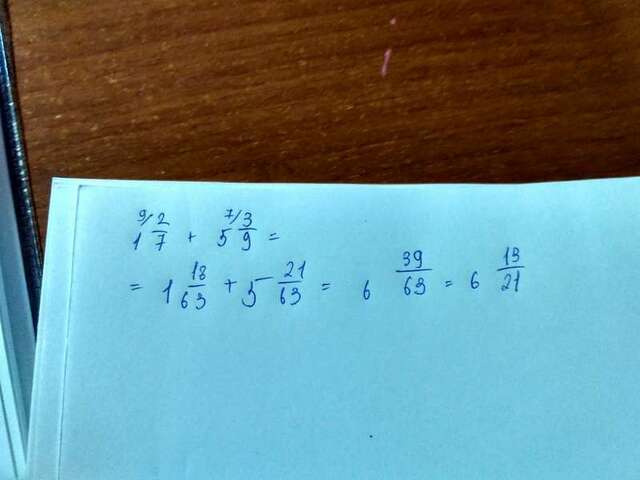 1 ⁹⁄ 2/7 + 5 ⁷⁄ 3/9 =
= 1 18/63 + 5 21/63 = 6 39/63 = 6 13/21